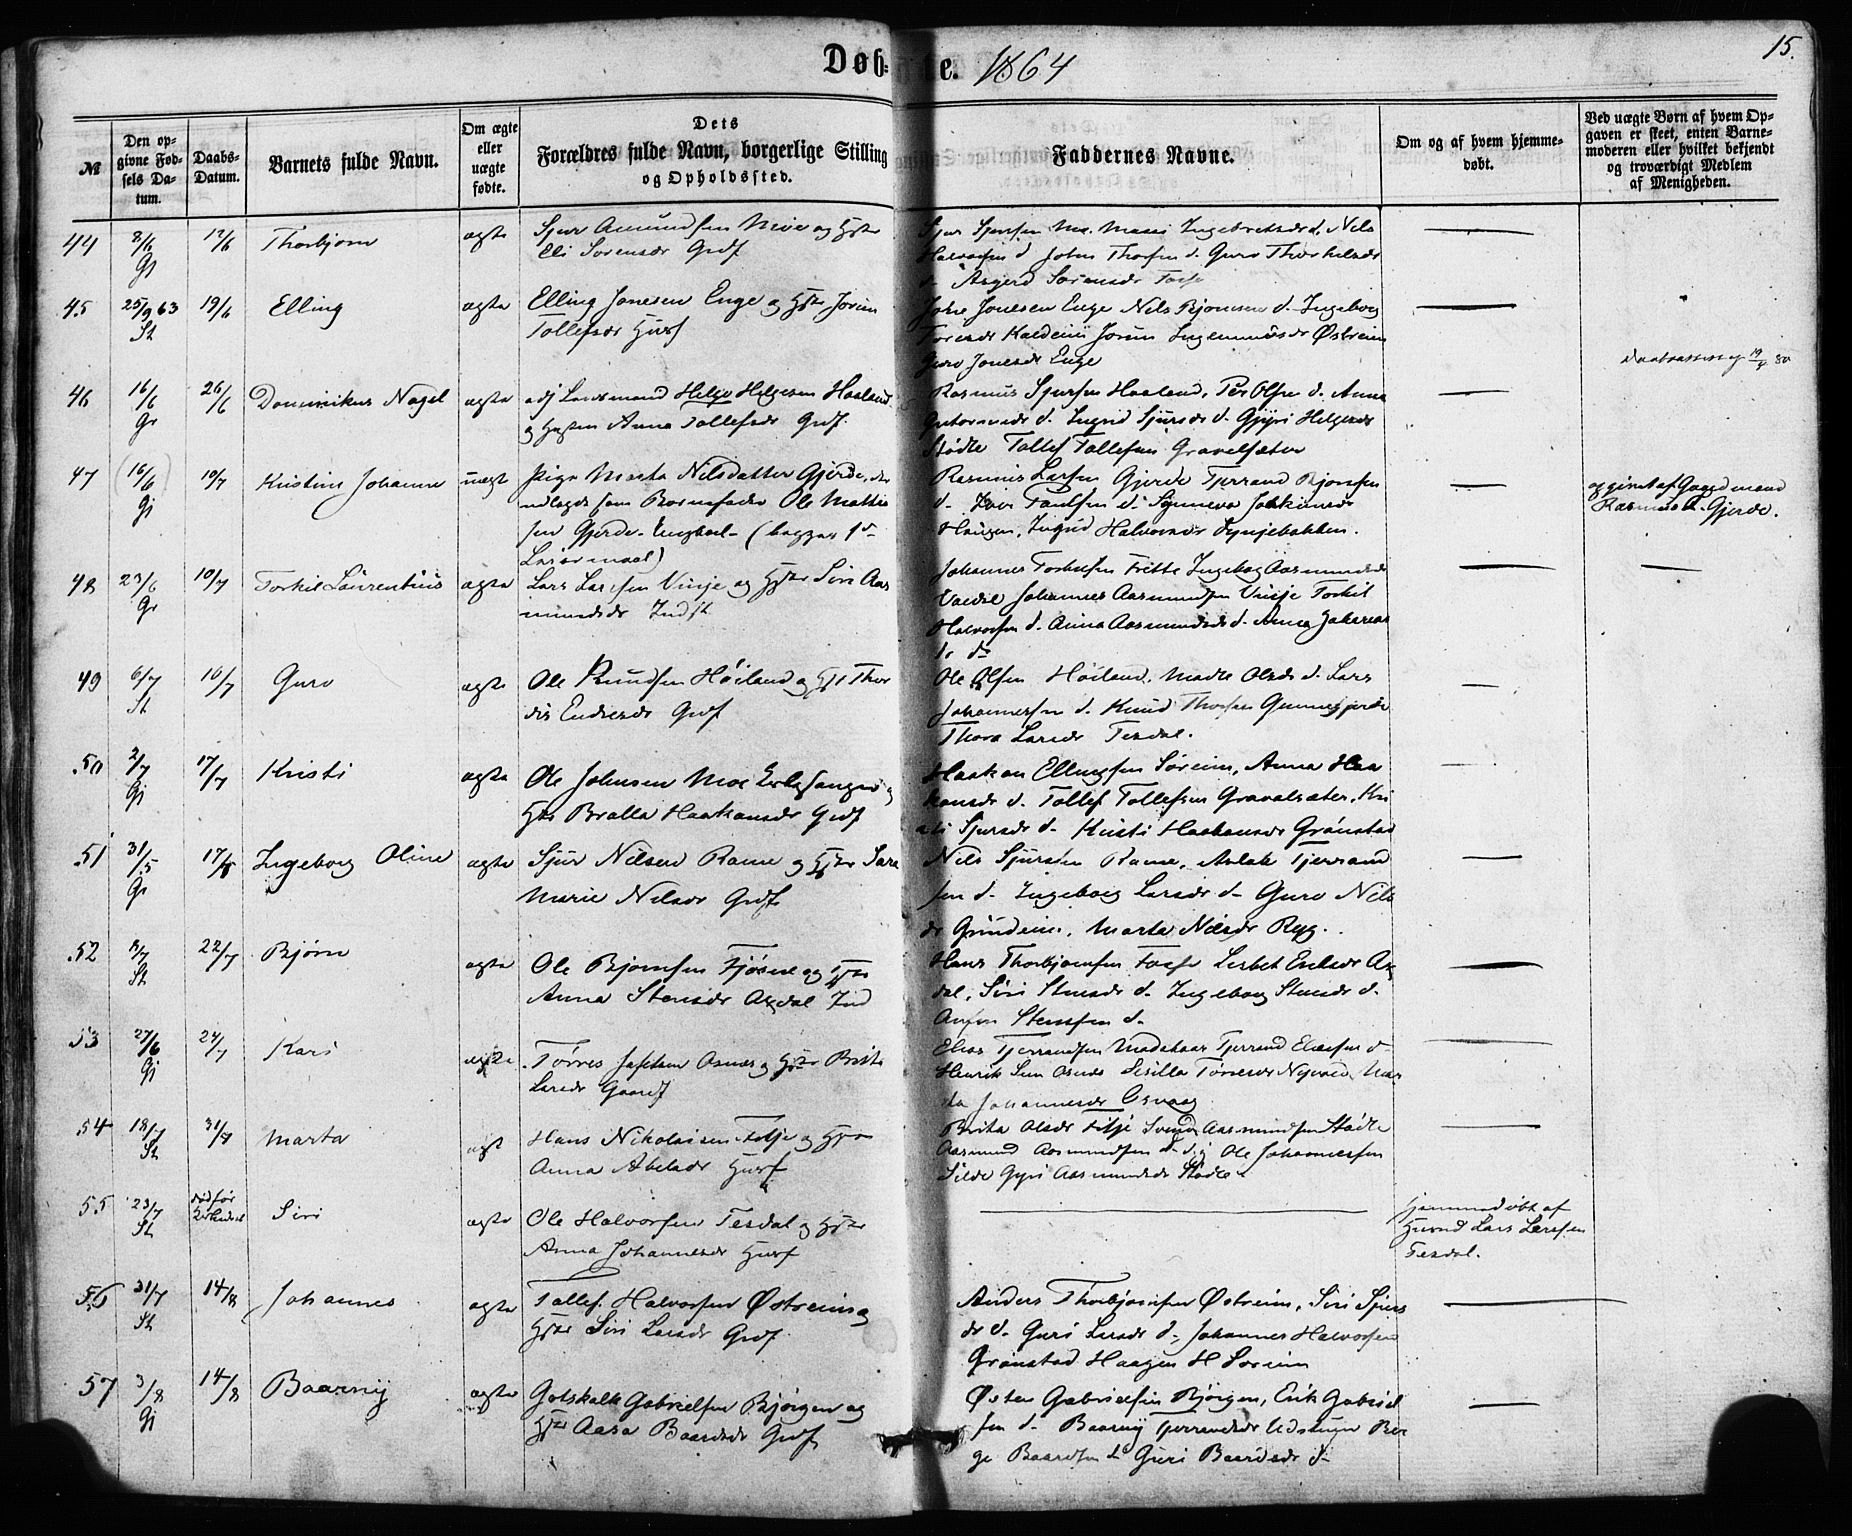 15.
Døbte. 1864
№
Den opgivne Fødsels Datum.
Daabs-Datum.
Barnets fulde Navn.
Om ægte eller uægte fødte.
Dets Forældres fulde Navn, borgerlige Stilling og Opholdssted.
Faddernes Navne.
Om og af hvem hjemmedøbt.
Ved uægte Børn af hvem Opgaven er skeet, enten Barnemoderen eller hvilket bekjendt og troværdigt Medlem af Menigheden.
44 8/6 Gj 12/6 Thorbjørn ægte Sjur Amundsen
Eli Sørensdr Grdf
Halvorsen d. John
Asgerd Sørensdr Fosse
45 25/9 63 St 19/6 Elling ægte Elling Jonesen Enge og Hstr Jorun
Tollefsdr Husf
Jone Jonesen Enge Nils Bjørnsen d. Ingeborg
Jorun Ingemundsdr Østreim
Guro Jonesdr Enge
19/4 80
46 16/6 Gr 26/6 Dominikus Nagel ægte adj Lensmand Helge Helgesen Haaland
og Hustru Anna Tollefsdr Grdf.
Rasmus Sjursen Haaland, Per Olsen d. Anna
d. Ingrid Sjursdr d. Gjyri Helgesdr
Stødle Tollef Tollefsen Gravelsæter
47 (16/6) Gj 10/7 Kristine Johanne uægt Pige Marta Nilsdatter Gjerde, der
udlagde som Barnefader Ole Mathis
sen Gjerde. Ungkarl - (begges 1ste
Leiermaal)
Rasmus Larsen Gjerde Tjerrand Bjørnsen
d. Iver Paulsen d. Synneva Jokkimsdr
Haugen, Ingrid Halvorsdr
opgivet af Gaardmand
Rasmus L. Gjerde.
48 23/6 Gr 10/7 Torkil Laurentius ægte Lars Larsen Vinje og Hstr Siri Aas
mundsdr Indst
Johannes Torkilsen Frette Ingeborg Aasmundsdr
Johannes Aasmundsen Vinje Torkil
Halvorsen d. Anna Aasmundsdr d. Anna Johannes
dr d-
49 6/7 St 10/7 Guro ægte Ole Knudsen Høiland og Hst Thor
dis Endresdr Grdf
Ole Olsen Høiland, Madle Olsdr d. Lars
Johannessen d. Knud Thorsen Gunnegjerde
Thora Larsdr Tesdal.
50 2/7 Gj 17/7 Kristi ægte Ole Johnsen Moe Kirkesanger og
Hstr Bralla Haakonsdr Grdf
Haakon Ellingsen Søreim, Anna Haa
konsdr d. Tollef Tollefsen Gravalsæter, Kri
sti Sjursdr d- Kristi Haakonsdr Grønstad
51 31/5 Gr 17/7 Ingeborg Oline ægte Sjur Nilsen Rame og Hstr Sara
Marie Nilsdr Grdf
Nils Sjursen Rame, Aslak Tjerrand
sen d- Ingeborg Larsdr d- Guro Nils
dr Grindeim, Marta Nilsdr Ryg.
52 8/7 St 22/7 Bjørn ægte Ole Bjørnsen Fjøsne og Hstr
Anna Stensdr Axdal Ind
Hans Thorbjørnsen Fosse Lisbet Eriksdr Ax
dal, Siri Stensdr d. Ingeborg Stensdr d.
Anfin Stensen d-
53 27/6 Gj 24/7 Kari ægte Tørres Jofetsen Osnes og Hstr Brita
Larsdr Gaardf
Elias Tjerrandsen Tjerrand Eliassen d-
Henrik Osnes Sesilla Tørresdr Mar
ta Johannesdr Osvaag
54 18/7 St 31/7 Marta ægt Hans Nikolaisen Fitje og Hstr
Anna Abelsdr Husf
Brita Olsdr Fitje Svend Aasmundsen Stødle
Aasmund Aasmundsen d- Ole Johannessen
Silde Gyri Aasmundsdr Stødle
55 23/7 St død før Siri ægte Ole Halvorsen Tesdal og Hstr
Anna Johannesdr Husf
hjemmedøbt af
Husmd Lars Larsen
Tesdal.
56 31/7 St 14/8 Johannes ægte Tollef Halvorsen Østreim og
Hstr Siri Larsdr Grdf.
Anders Thorbjørnsen Østreim, Siri Sjurs
dr d. Guri Larsdr d, Johannes Halvorsen
Grønstad Haagen H Søreim
57 3/8 Gj 14/8 Baarnij ægte Gotskalk Gabrielsen Bjørgen og
Hstr Aasa Baardsdr Grdf
Østen Gabrielsen Bjørgen, Erik Gabriel
sen d- Baarnij Tjerrandsdr Udstuen Bør
ge Baardsen d- Guri Baardsdr d-